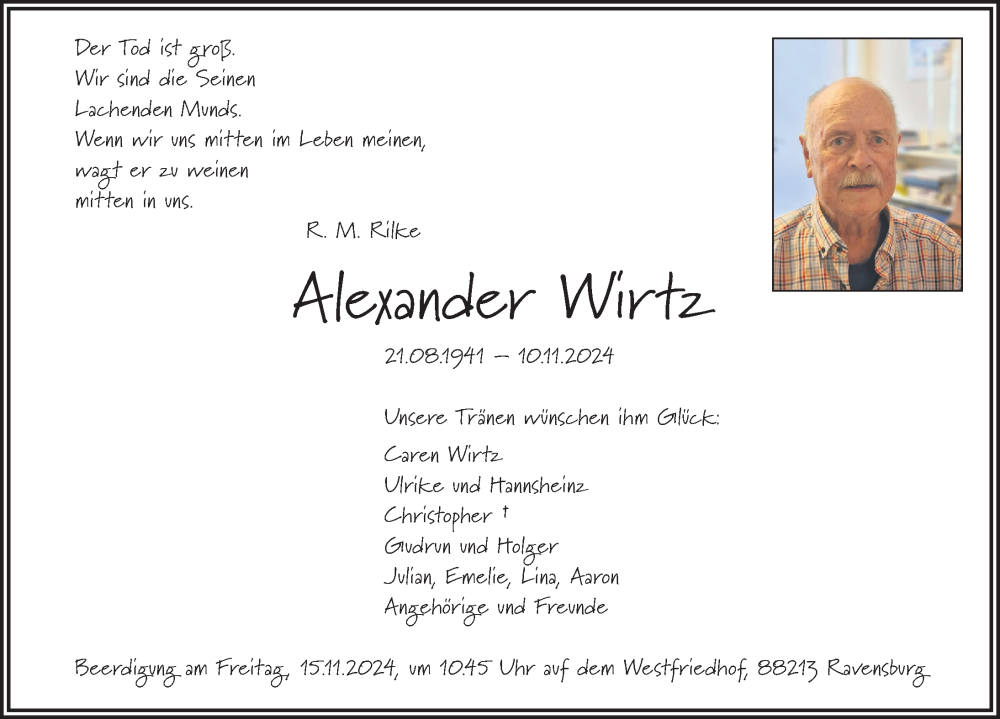 Der Tod ist groß.
Wir sind die Seinen
Lachenden Munds.
Wenn wir uns mitten im Leben meinen,
wagt er zu weinen
mitten in uns.
R. M. Rilke
Alexander Wirtz
21.08.1941 – 10.11.2024
Unsere Tränen wünschen ihm Glück:
Caren Wirtz
Ulrike und Hannsheinz
Christopher †
Gudrun und Holger
Julian, Emelie, Lina, Aaron
Angehörige und Freunde
Beerdigung am Freitag, 15.11.2024, um 10.45 Uhr auf dem Westfriedhof, 88213 Ravensburg